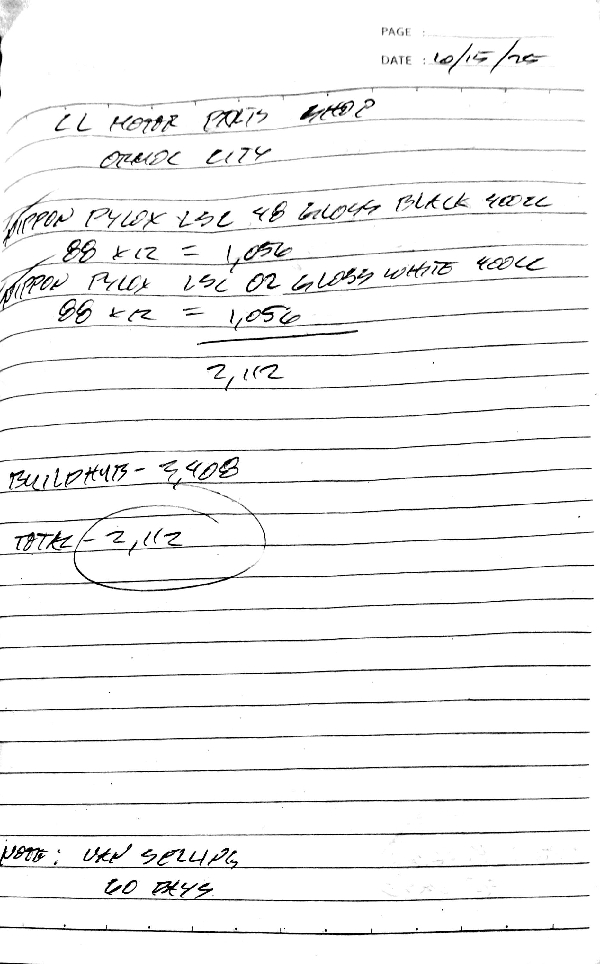 PAGE :
DATE : 10/15/25
LL MOTOR PARTS SHOP
ORMOC CITY
NIPPON PYLOX LSC 48 GLOSS BLACK 400CC
88 x 12 = 1,056
NIPPON PYLOX LSC 02 GLOSS WHITE 400CC
88 x 12 = 1,056
2,112
BUILDHUB - 3,408
TOTAL - 2,112
NOTE: VAN SELLING
60 DAYS